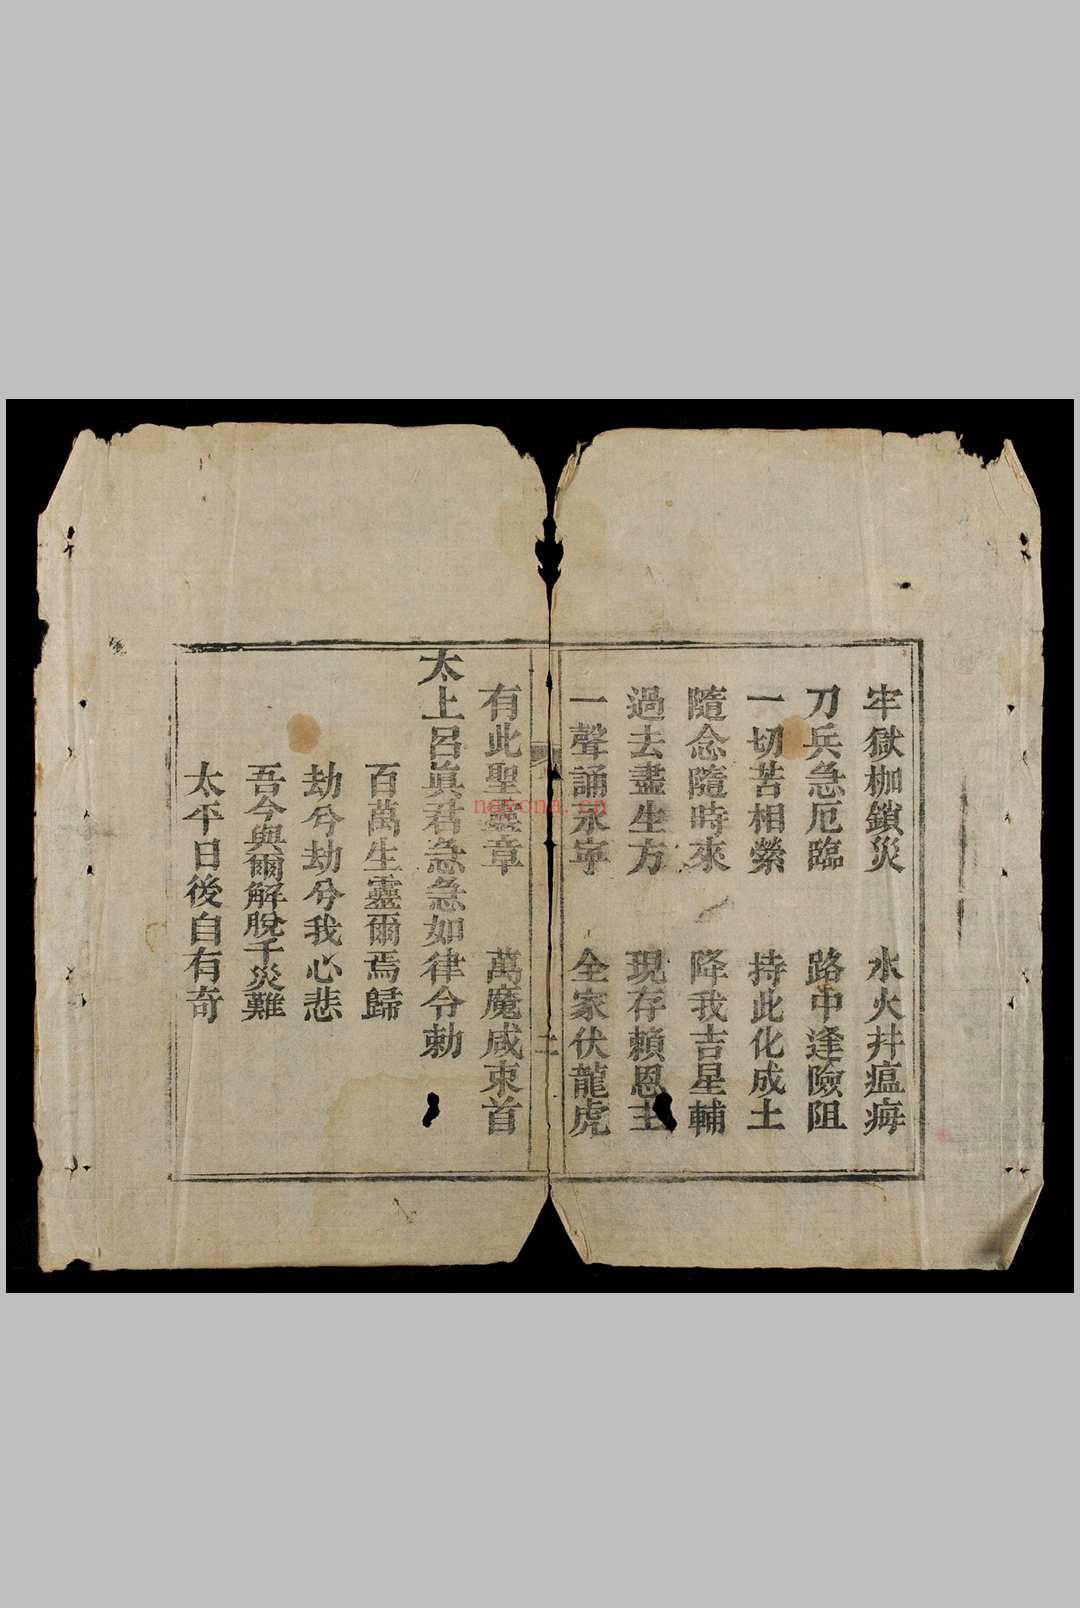 牢獄枷鎖災 水火井瘟㾂
刀兵急厄臨 路中逢險阻
一切苦相縈 持此化成土
隨念隨時來 降我吉星輔
過去盡生方 現存賴恩主
一聲誦永寧 全家伏龍虎
二
有此聖靈章 萬魔咸束首
太上呂眞君急急如律令勅
百萬生靈爾焉歸
劫兮劫兮我心悲
吾今與爾解脫千災難
太平日後自有奇
nayona.cn